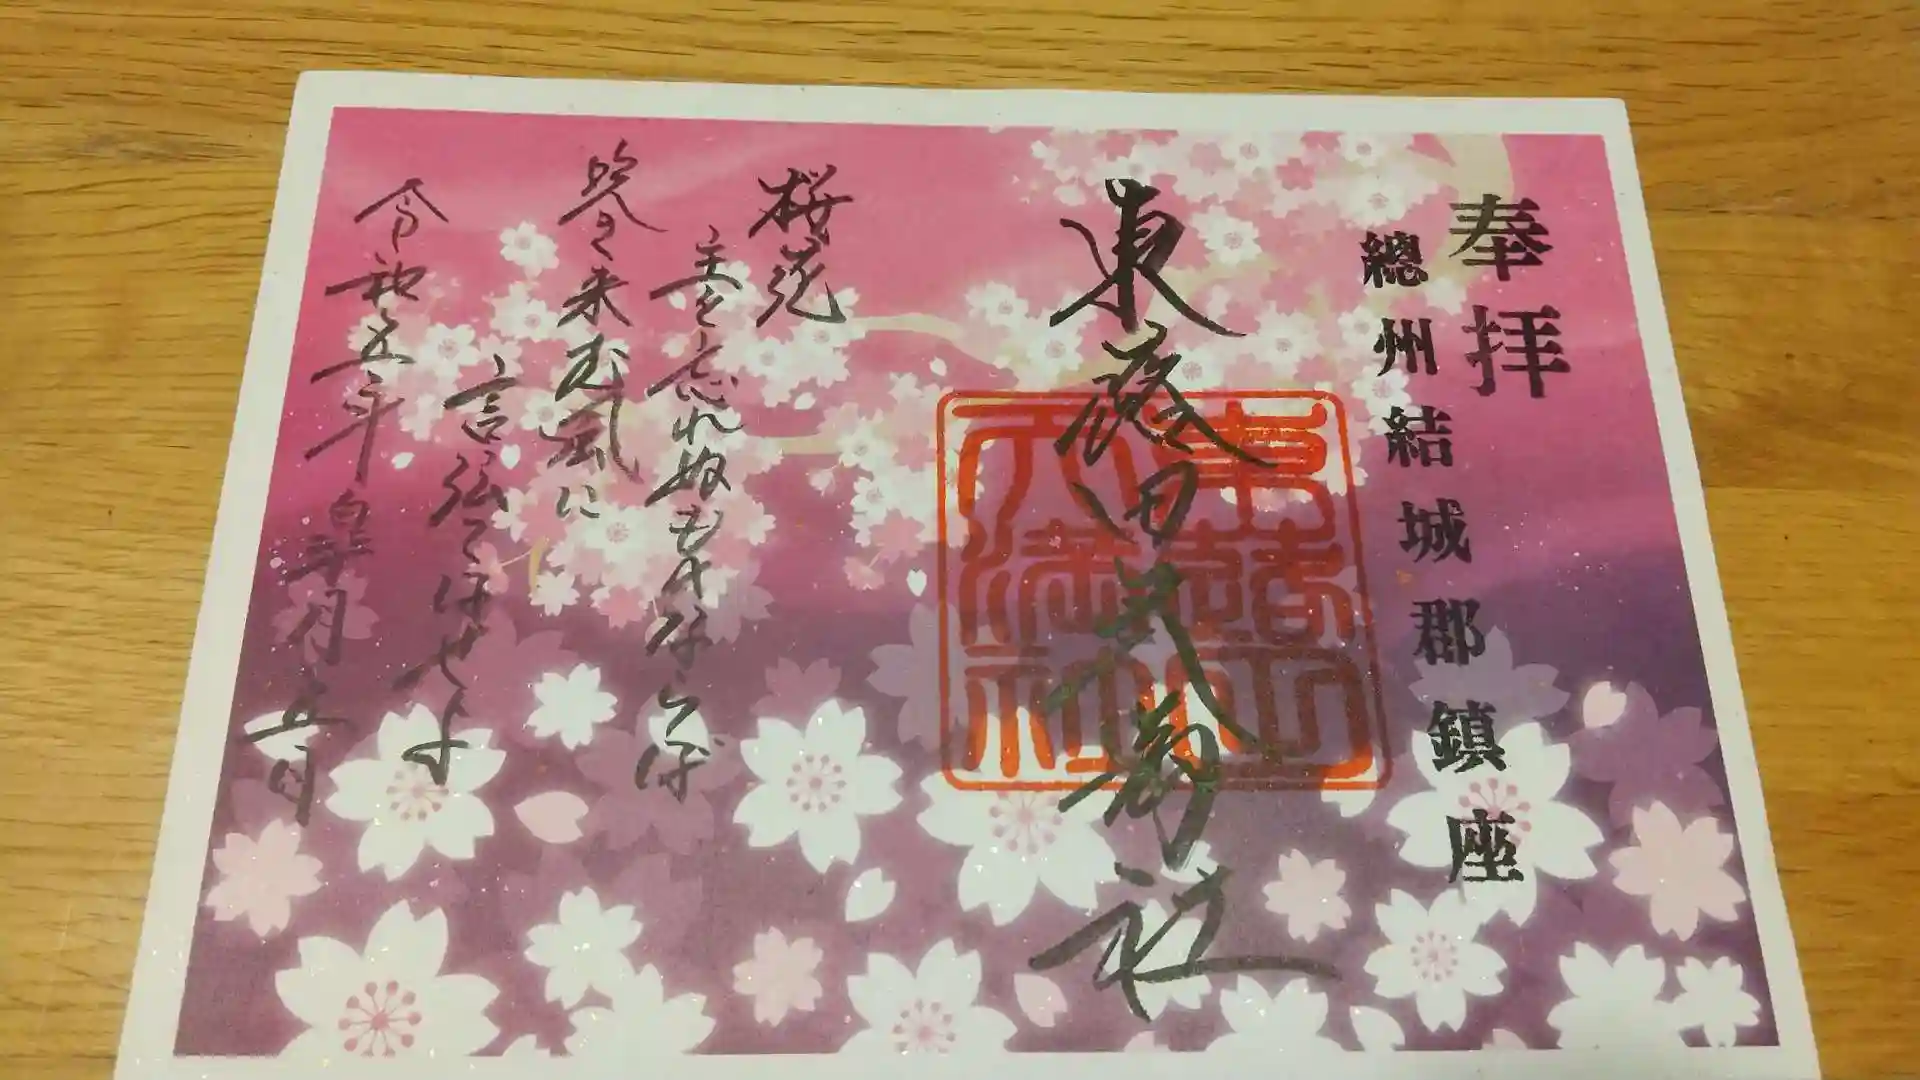 奉拝
總州結城郡鎮座
東蕗田天満社
桜花
主を忘れぬものならば
吹き来む風に
言伝てはせよ
令和五年皐月五日
東蕗田天満社